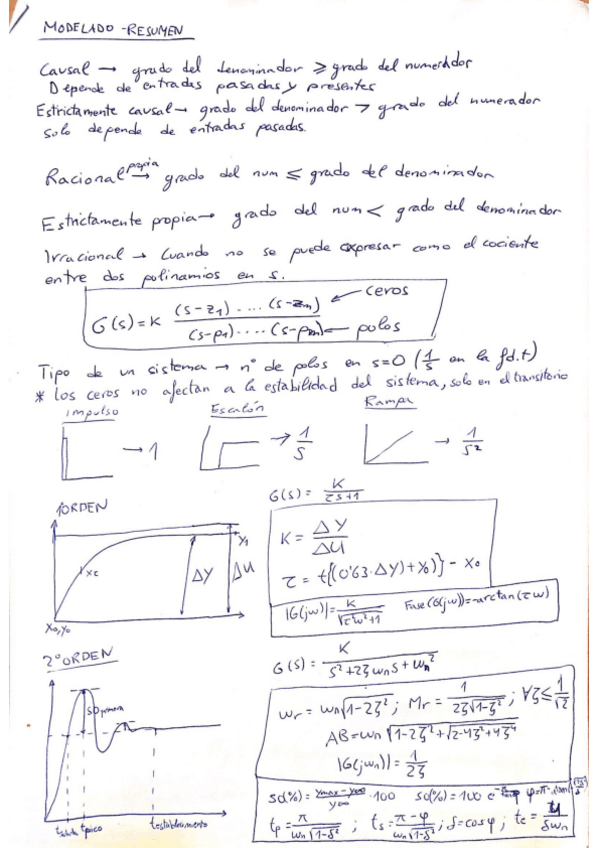 MODELADO - RESUMEN
Causal → grado del denominador ⩾ grado del numerador
Depende de entradas pasadas y presentes
Estrictamente causal → grado del denominador > grado del numerador
solo depende de entradas pasadas.
Racional propia → grado del num ⩽ grado del denominador
Estrictamente propia → grado del num < grado del denominador
Irracional → Cuando no se puede expresar como el cociente
entre dos polinamios en s.
G(s) = K (s-z1) .... (s-zm) / (s-p1) .... (s-pm) ← ceros ← polos
Tipo de un sistema → nº de polos en s=0 (1/s en la fd.t)
* los ceros no afectan a la estabilidad del sistema, solo en el transitorio
impulso Escalón Rampa
→ 1 → 1/s → 1/s²
1ORDEN
G(s) = K/(τs+1)
K = ΔY/ΔU
τ = t{(0'63·ΔY)+Y0)} - X0
|G(jω)| = K/√(τ²ω²+1) Fase(G(jω)) = -arctan(τω)
Y1 ΔY ΔU
Xτ
X0,Y0
2ºORDEN
G(s) = K/(s²+2ζωns+ωn²)
ωr = ωn√(1-2ζ²); Mr = 1/(2ζ√(1-ζ²)); ∀ζ≤1/√2
AB = ωn√(1-2ζ²+√(2-4ζ²+4ζ⁴))
|G(jωn)| = 1/2ζ
so(%) = (ymax - y∞)/y∞ · 100 so(%) = 100 e
tp = π/(ωn√(1-δ²)); ts = (π-φ)/(ωn√(1-δ²)); δ=cosφ; te = π/(δωn)
tsubida tpico testablecimiento